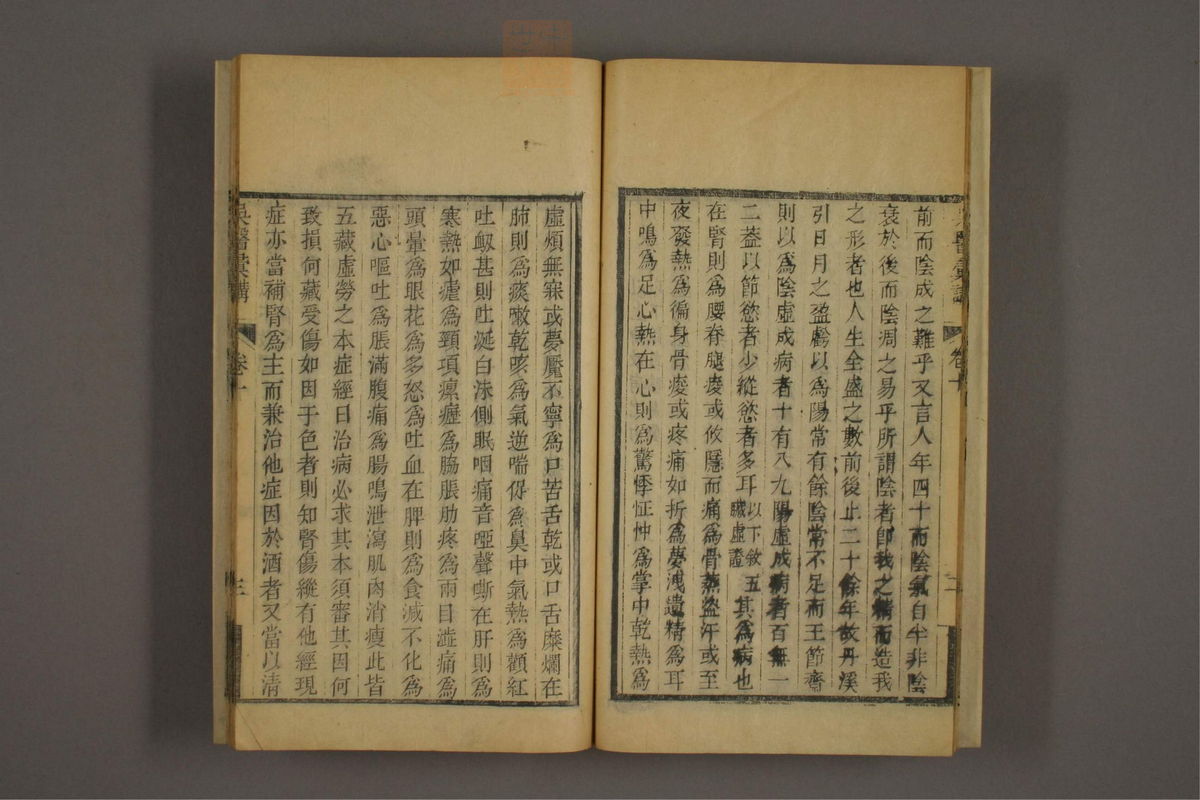 前而陰成之難乎又言人年四十而陰氣自半非陰
衰於後而陰凋之易乎所謂陰者卽我之精而造我
之形者也人生全盛之數前後止二十餘年故丹溪
引日月之盈虧以爲陽常有餘陰常不足而王節齋
則以爲陰虛成病者十有八九陽虛成病者百無一
二葢以節慾者少縱慾者多耳以下敘五臟虛證其爲病也
在腎則爲腰脊腿痠或攸隱而痛爲骨蒸盜汗或至
夜發熱爲徧身骨痠或疼痛如折爲夢洩遺精爲耳
中鳴爲足心熱在心則爲驚悸怔忡爲掌中乾熱爲
虛煩無寐或夢魘不寧爲口苦舌乾或口舌糜爛在
肺則爲痰嗽乾咳爲氣逆喘促爲鼻中氣熱爲顴紅
吐衂甚則吐涎白沫側眠咽痛音啞聲嘶在肝則爲
寒熱如瘧爲頸項瘰癧爲脇脹肋疼爲兩目澁痛爲
頭暈爲眼花爲多怒爲吐血在脾則爲食減不化爲
惡心嘔吐爲脹滿腹痛爲腸鳴泄瀉肌肉消瘦此皆
五藏虛勞之本症經曰治病必求其本須審其因何
致損何藏受傷如因于色者則知腎傷縱有他經現
症亦當補腎爲主而兼治他症因於酒者又當以清
吳醫彙講
卷十
三